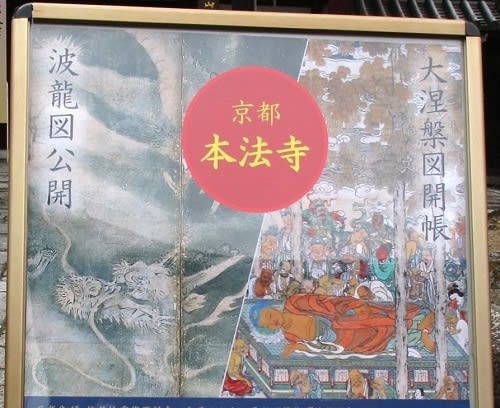 大涅槃図開帳
京都
本法寺
波龍図公開